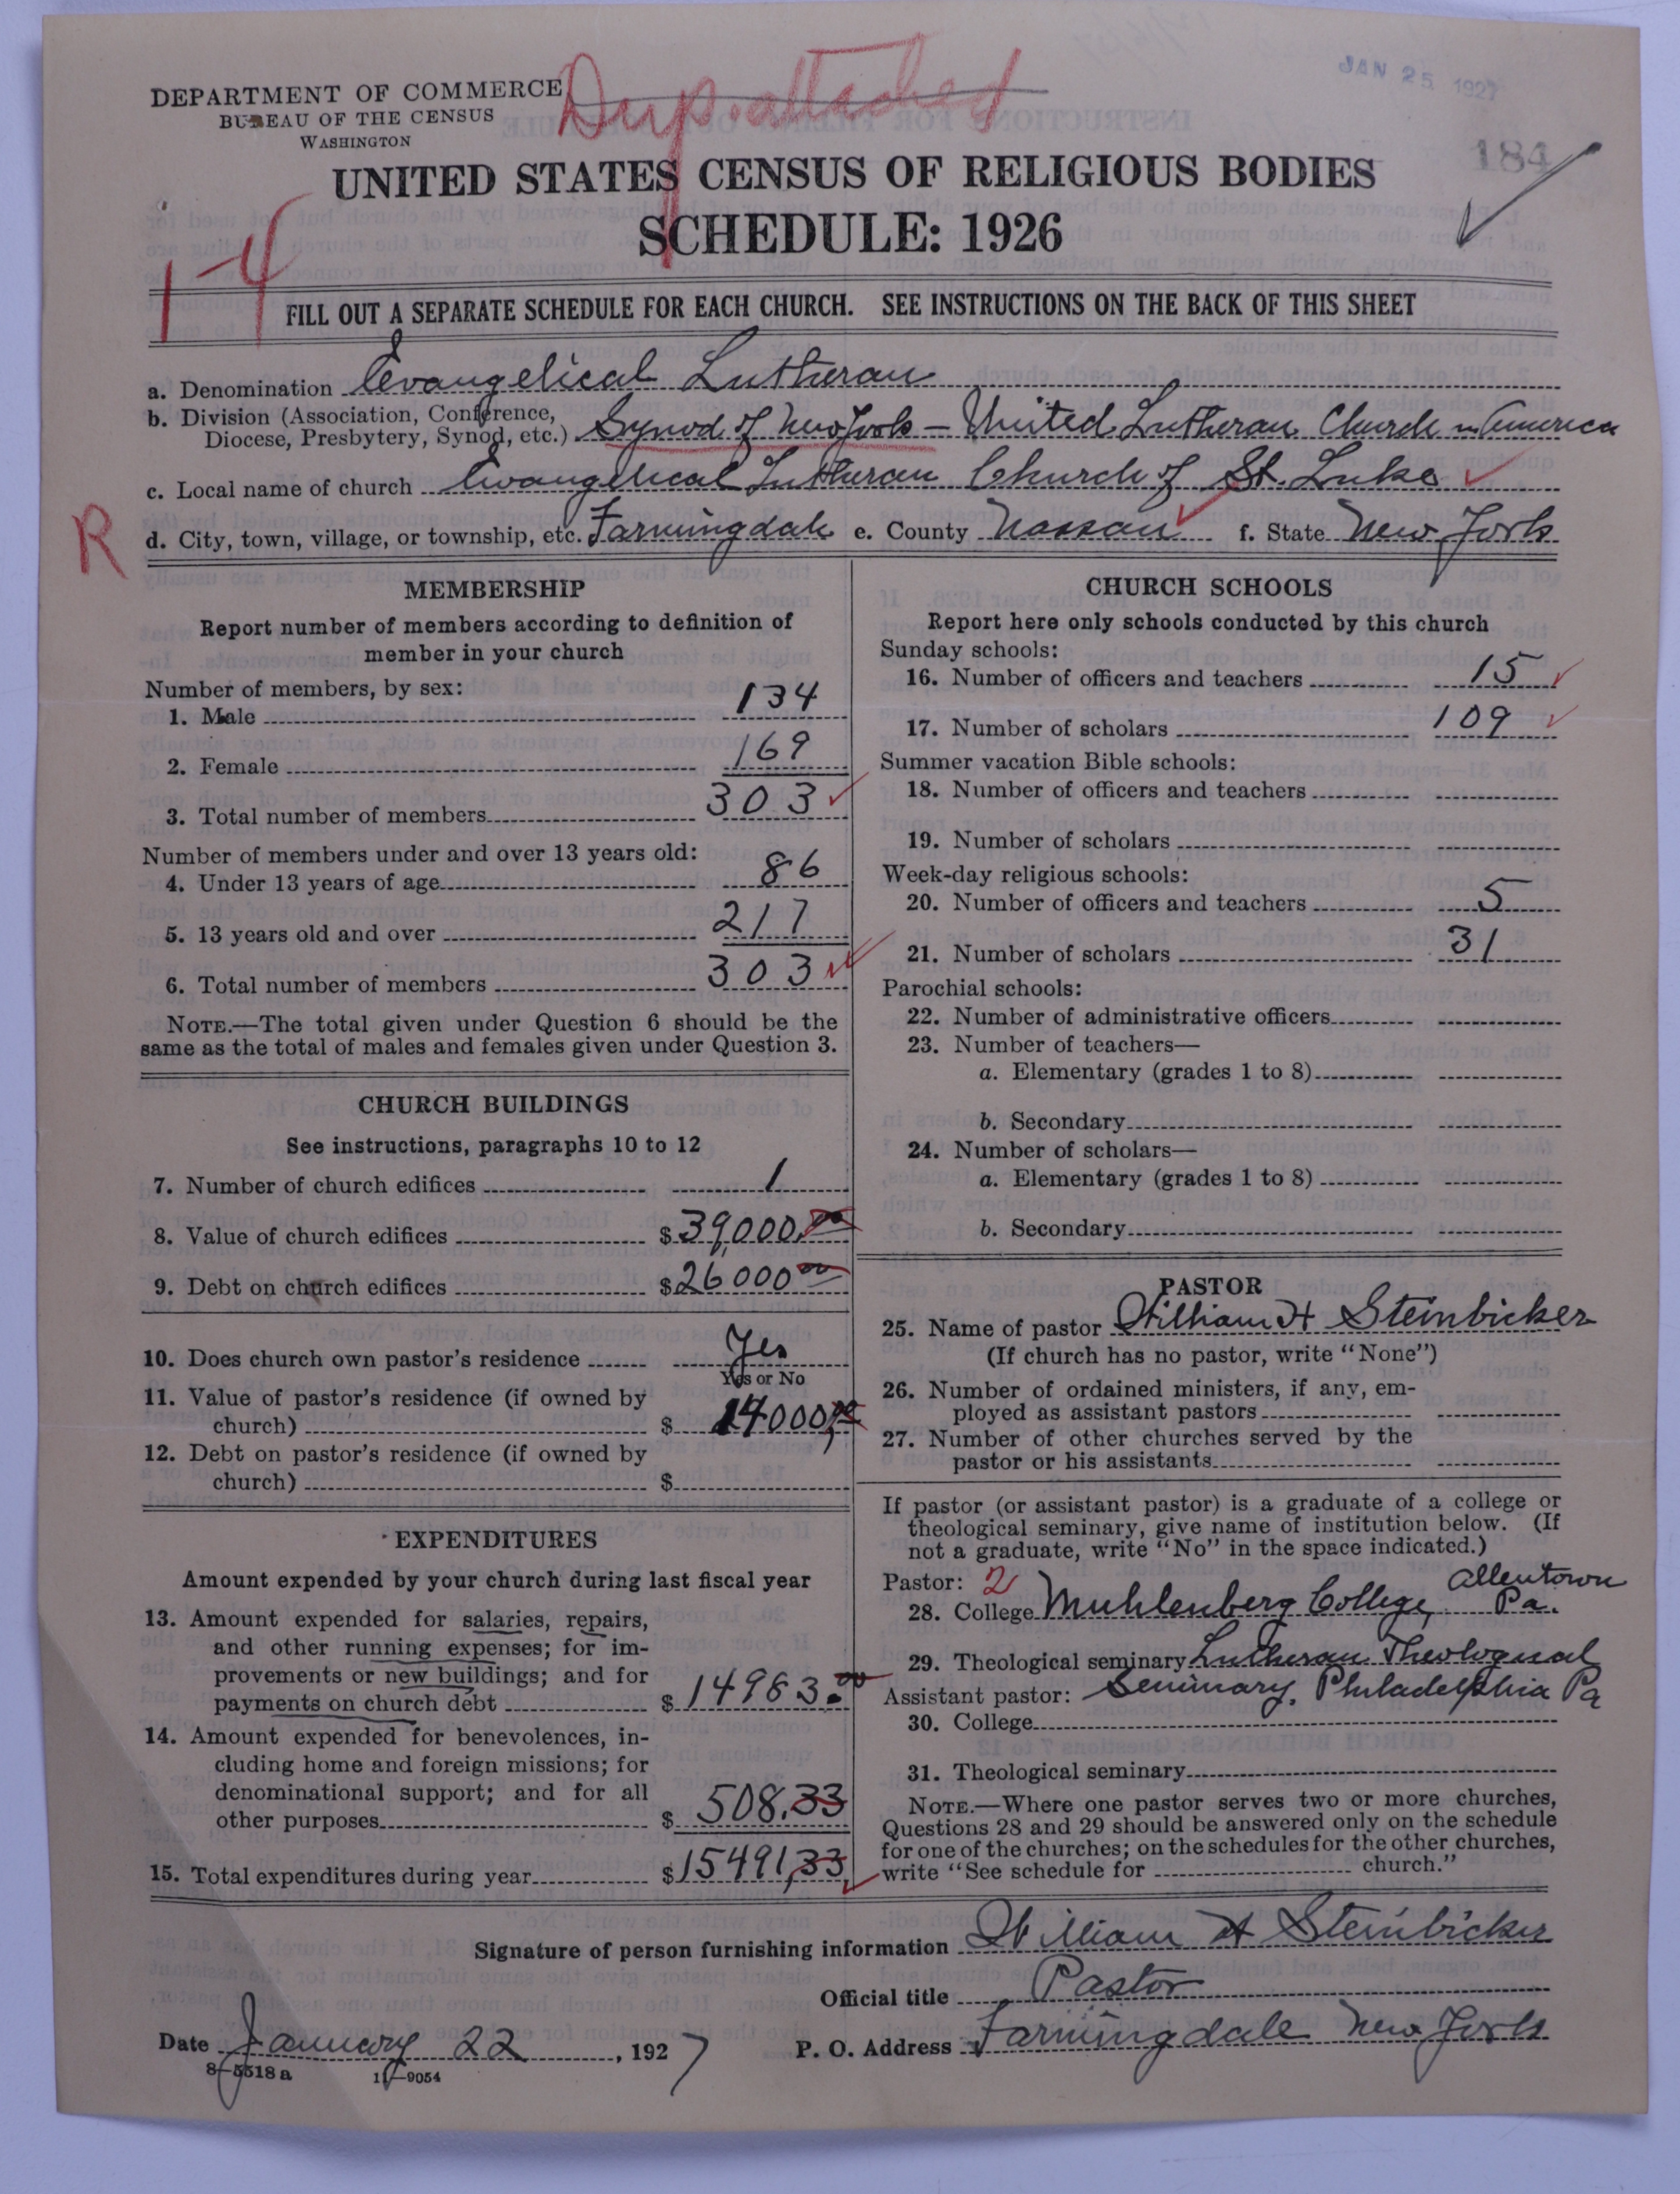 Dup. attached
JAN 25 1927
DEPARTMENT OF COMMERCE
BUREAU OF THE CENSUS
WASHINGTON
184
UNITED STATES CENSUS OF RELIGIOUS BODIES
SCHEDULE: 1926
1-4
FILL OUT A SEPARATE SCHEDULE FOR EACH CHURCH. SEE INSTRUCTIONS ON THE BACK OF THIS SHEET
a. Denomination Evangelical Lutheran
b. Division (Association, Conference,
Diocese, Presbytery, Synod, etc.) Synod of New York – United Lutheran Church in America
c. Local name of church Evangelical Lutheran Church of St. Luke
R
d. City, town, village, or township, etc. Farmingdale e. County Nassau f. State New York
MEMBERSHIP
Report number of members according to definition of
member in your church
Number of members, by sex:
1. Male 134
2. Female 169
3. Total number of members 303
Number of members under and over 13 years old:
4. Under 13 years of age 86
5. 13 years old and over 217
6. Total number of members 303
NOTE.—The total given under Question 6 should be the
same as the total of males and females given under Question 3.
CHURCH BUILDINGS
See instructions, paragraphs 10 to 12
7. Number of church edifices 1
8. Value of church edifices $39,000.00
9. Debt on church edifices $26000.00
10. Does church own pastor's residence Yes
Yes or No
11. Value of pastor's residence (if owned by
church) $ 14000.00
12. Debt on pastor's residence (if owned by
church) $
EXPENDITURES
Amount expended by your church during last fiscal year
13. Amount expended for salaries, repairs,
and other running expenses; for im-
provements or new buildings; and for
payments on church debt $14983.00
14. Amount expended for benevolences, in-
cluding home and foreign missions; for
denominational support; and for all
other purposes $ 508.33
15. Total expenditures during year $15491,33
CHURCH SCHOOLS
Report here only schools conducted by this church
Sunday schools:
16. Number of officers and teachers 15
17. Number of scholars 109
Summer vacation Bible schools:
18. Number of officers and teachers
19. Number of scholars
Week-day religious schools:
20. Number of officers and teachers 5
21. Number of scholars 31
Parochial schools:
22. Number of administrative officers
23. Number of teachers—
a. Elementary (grades 1 to 8)
b. Secondary
24. Number of scholars—
a. Elementary (grades 1 to 8)
b. Secondary
PASTOR
25. Name of pastor William H Steinbicker
(If church has no pastor, write "None")
26. Number of ordained ministers, if any, em-
ployed as assistant pastors
27. Number of other churches served by the
pastor or his assistants
If pastor (or assistant pastor) is a graduate of a college or
theological seminary, give name of institution below. (If
not a graduate, write "No" in the space indicated.)
Pastor: 2 Allentown
28. College Muhlenberg College, Pa.
29. Theological seminary Lutheran Theological
Assistant pastor: Seminary, Philadelphia Pa
30. College
31. Theological seminary
NOTE.—Where one pastor serves two or more churches,
Questions 28 and 29 should be answered only on the schedule
for one of the churches; on the schedules for the other churches,
write "See schedule for church."
Signature of person furnishing information William H Steinbicker
Official title Pastor
Date January 22, 1927 P. O. Address Farmingdale New York
8—5518a 11—9054